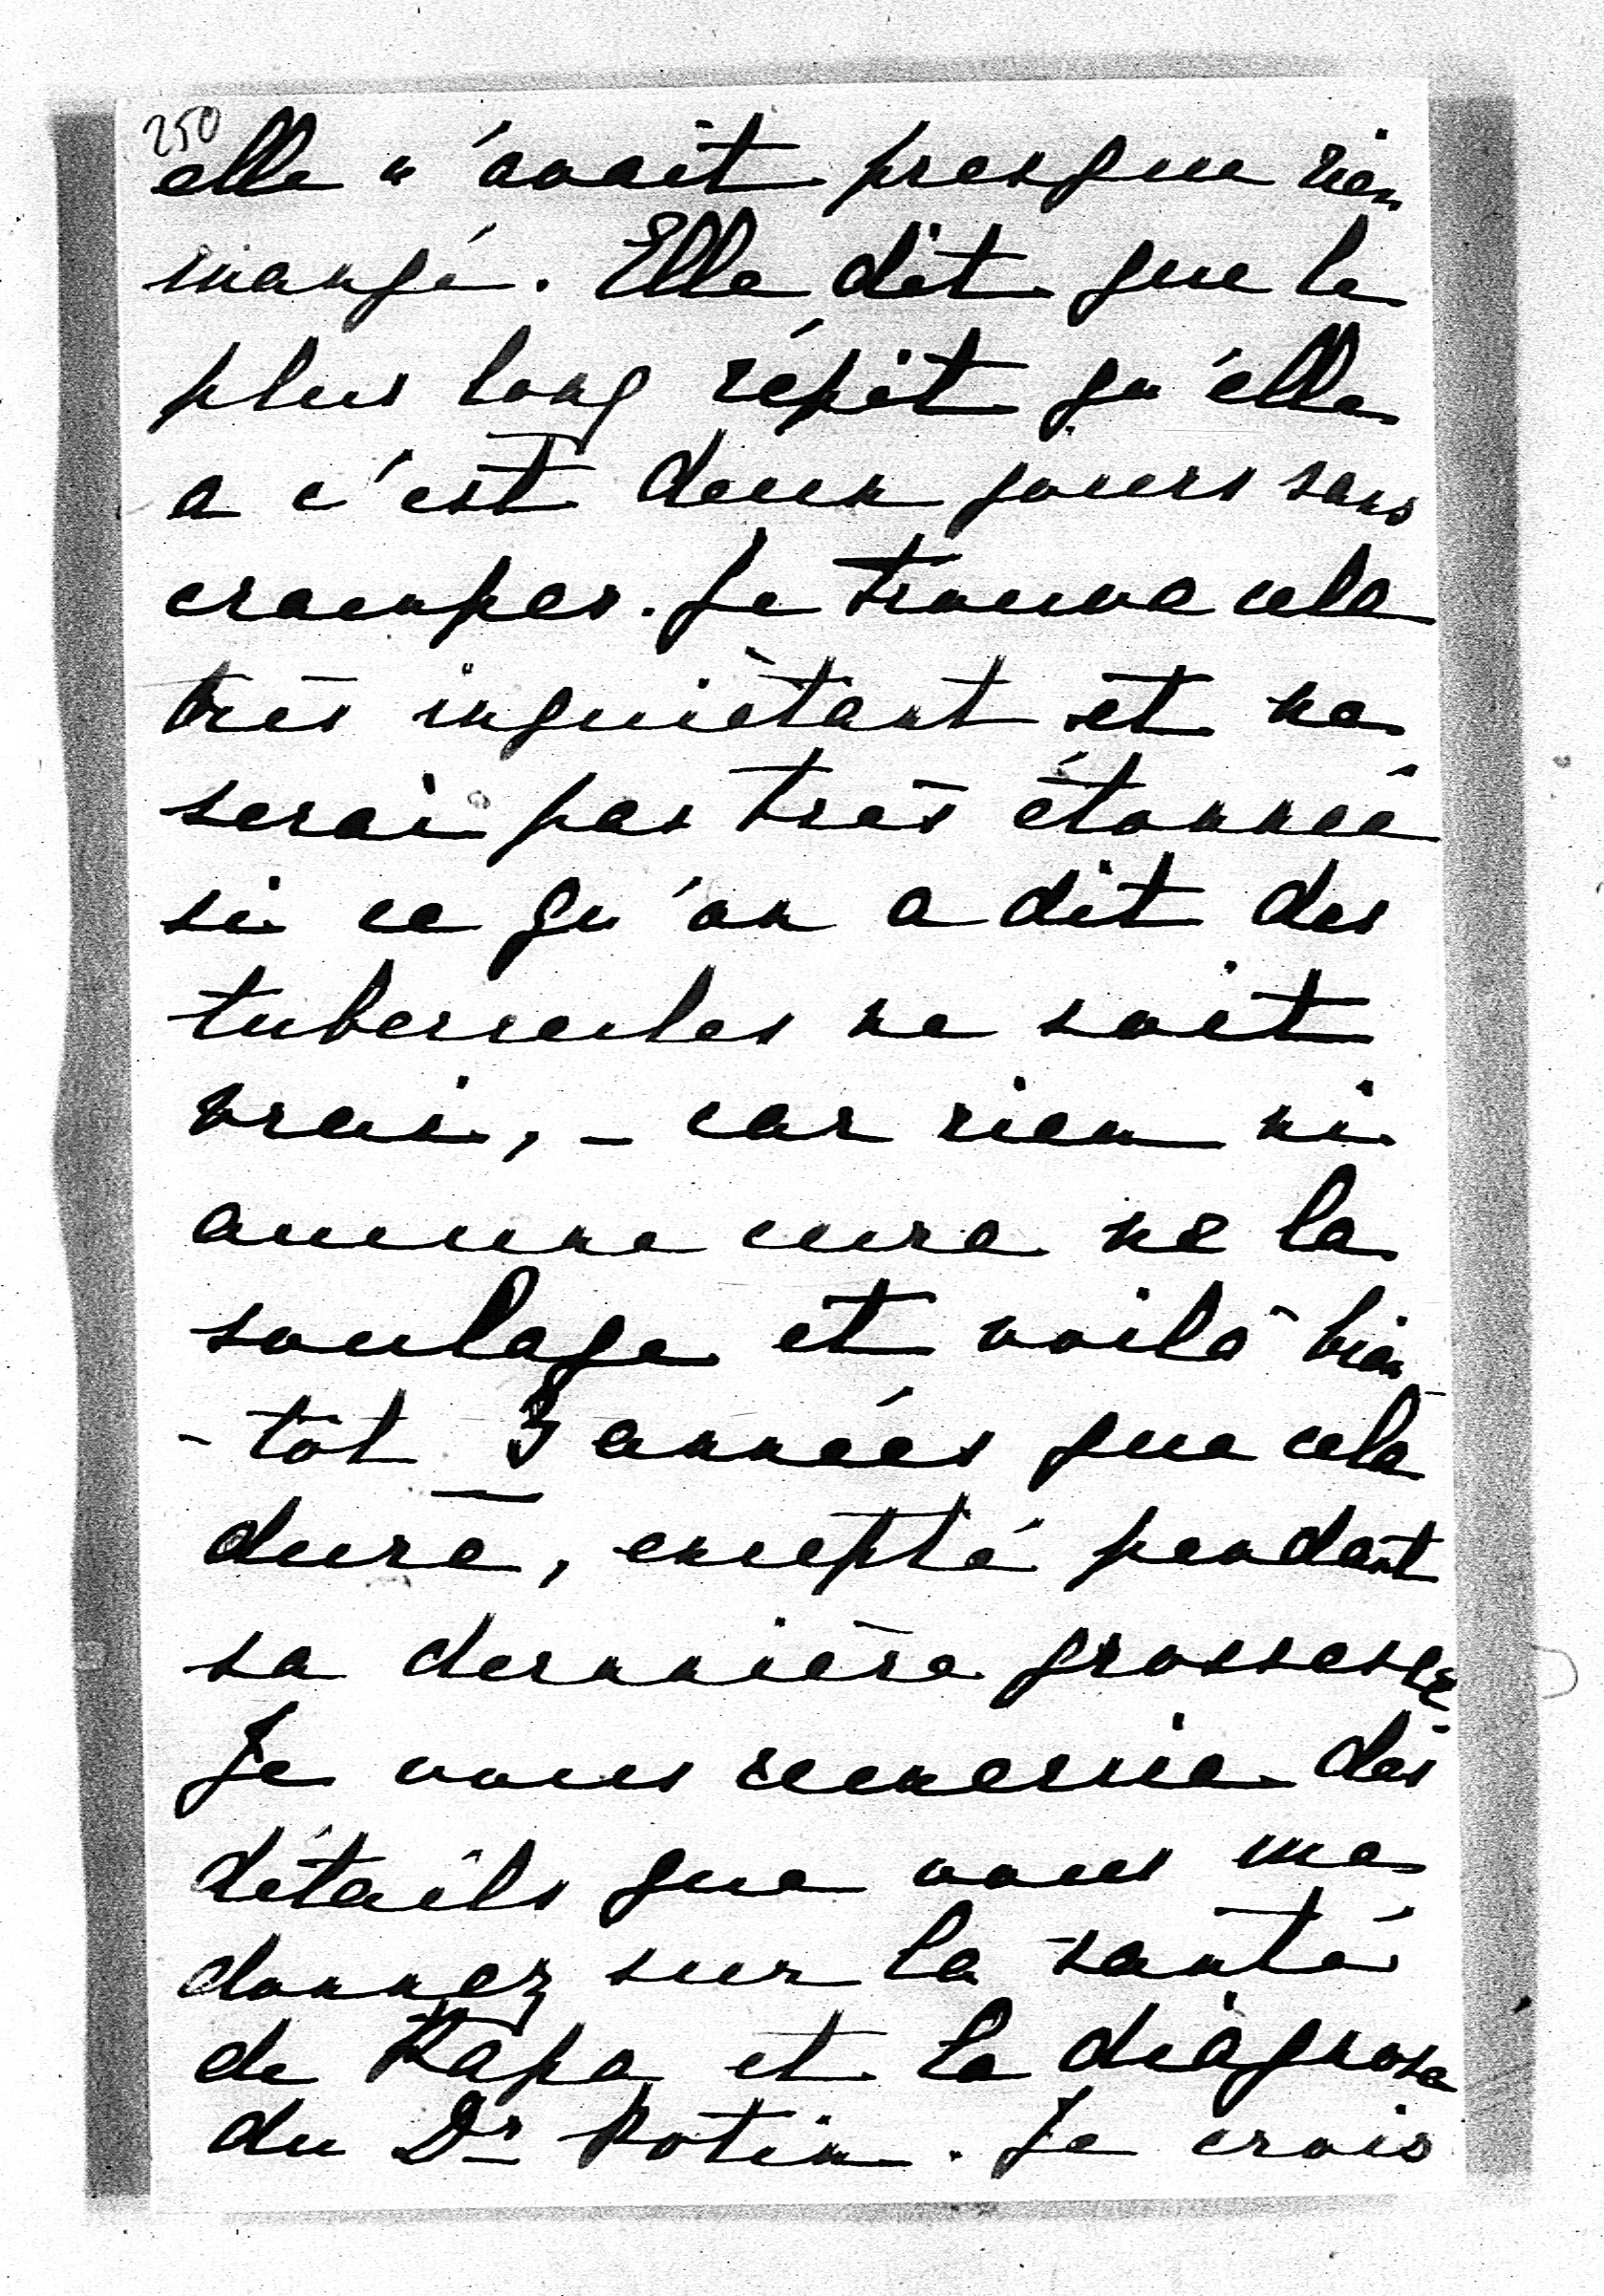 250
elle n'avait presque rien
mangé. Elle dit que le
plus long répit qu'elle
a c'est deux jours sans
crampes. Je trouve cela
très inquiètant et ne
serai pas très étonnée
si ce qu'on a dit des
tubercules ne soit
vrai, – car rien ni
aucune cure ne la
soulage et voilà bien
-tôt 3 années que cela
dure, excepté pendant
sa dernnière grossesse
Je vous remercie des
détails que vous me
donnez sur la santé
de Papa et la diagnose
du Dr Potin. Je crois